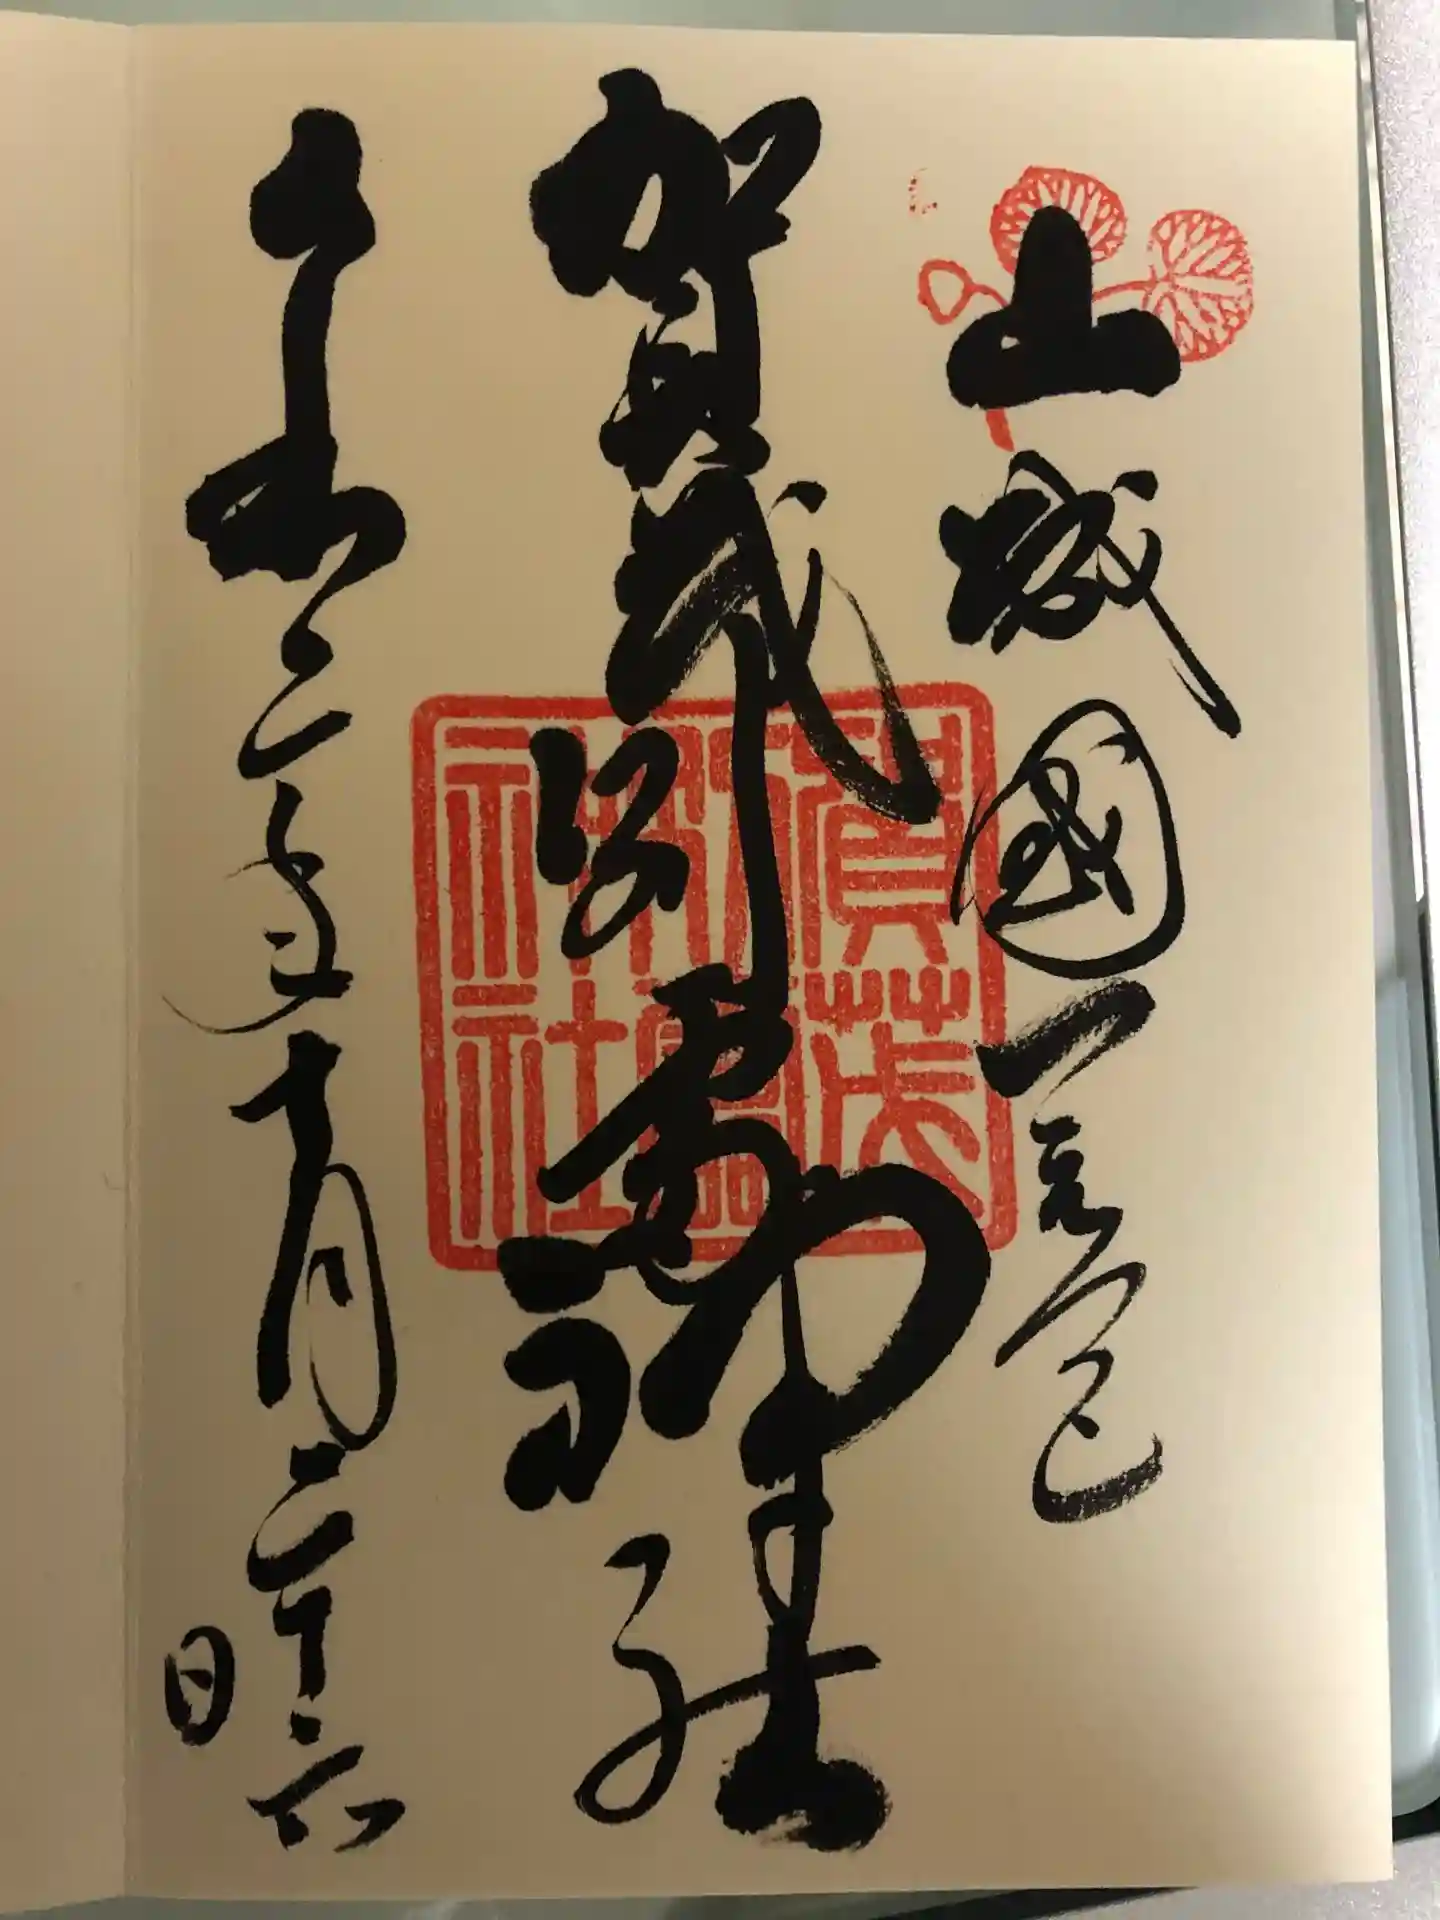 山城國一之宮
賀茂別雷神社
令和二年十月二十六日
賀茂
別雷
神社